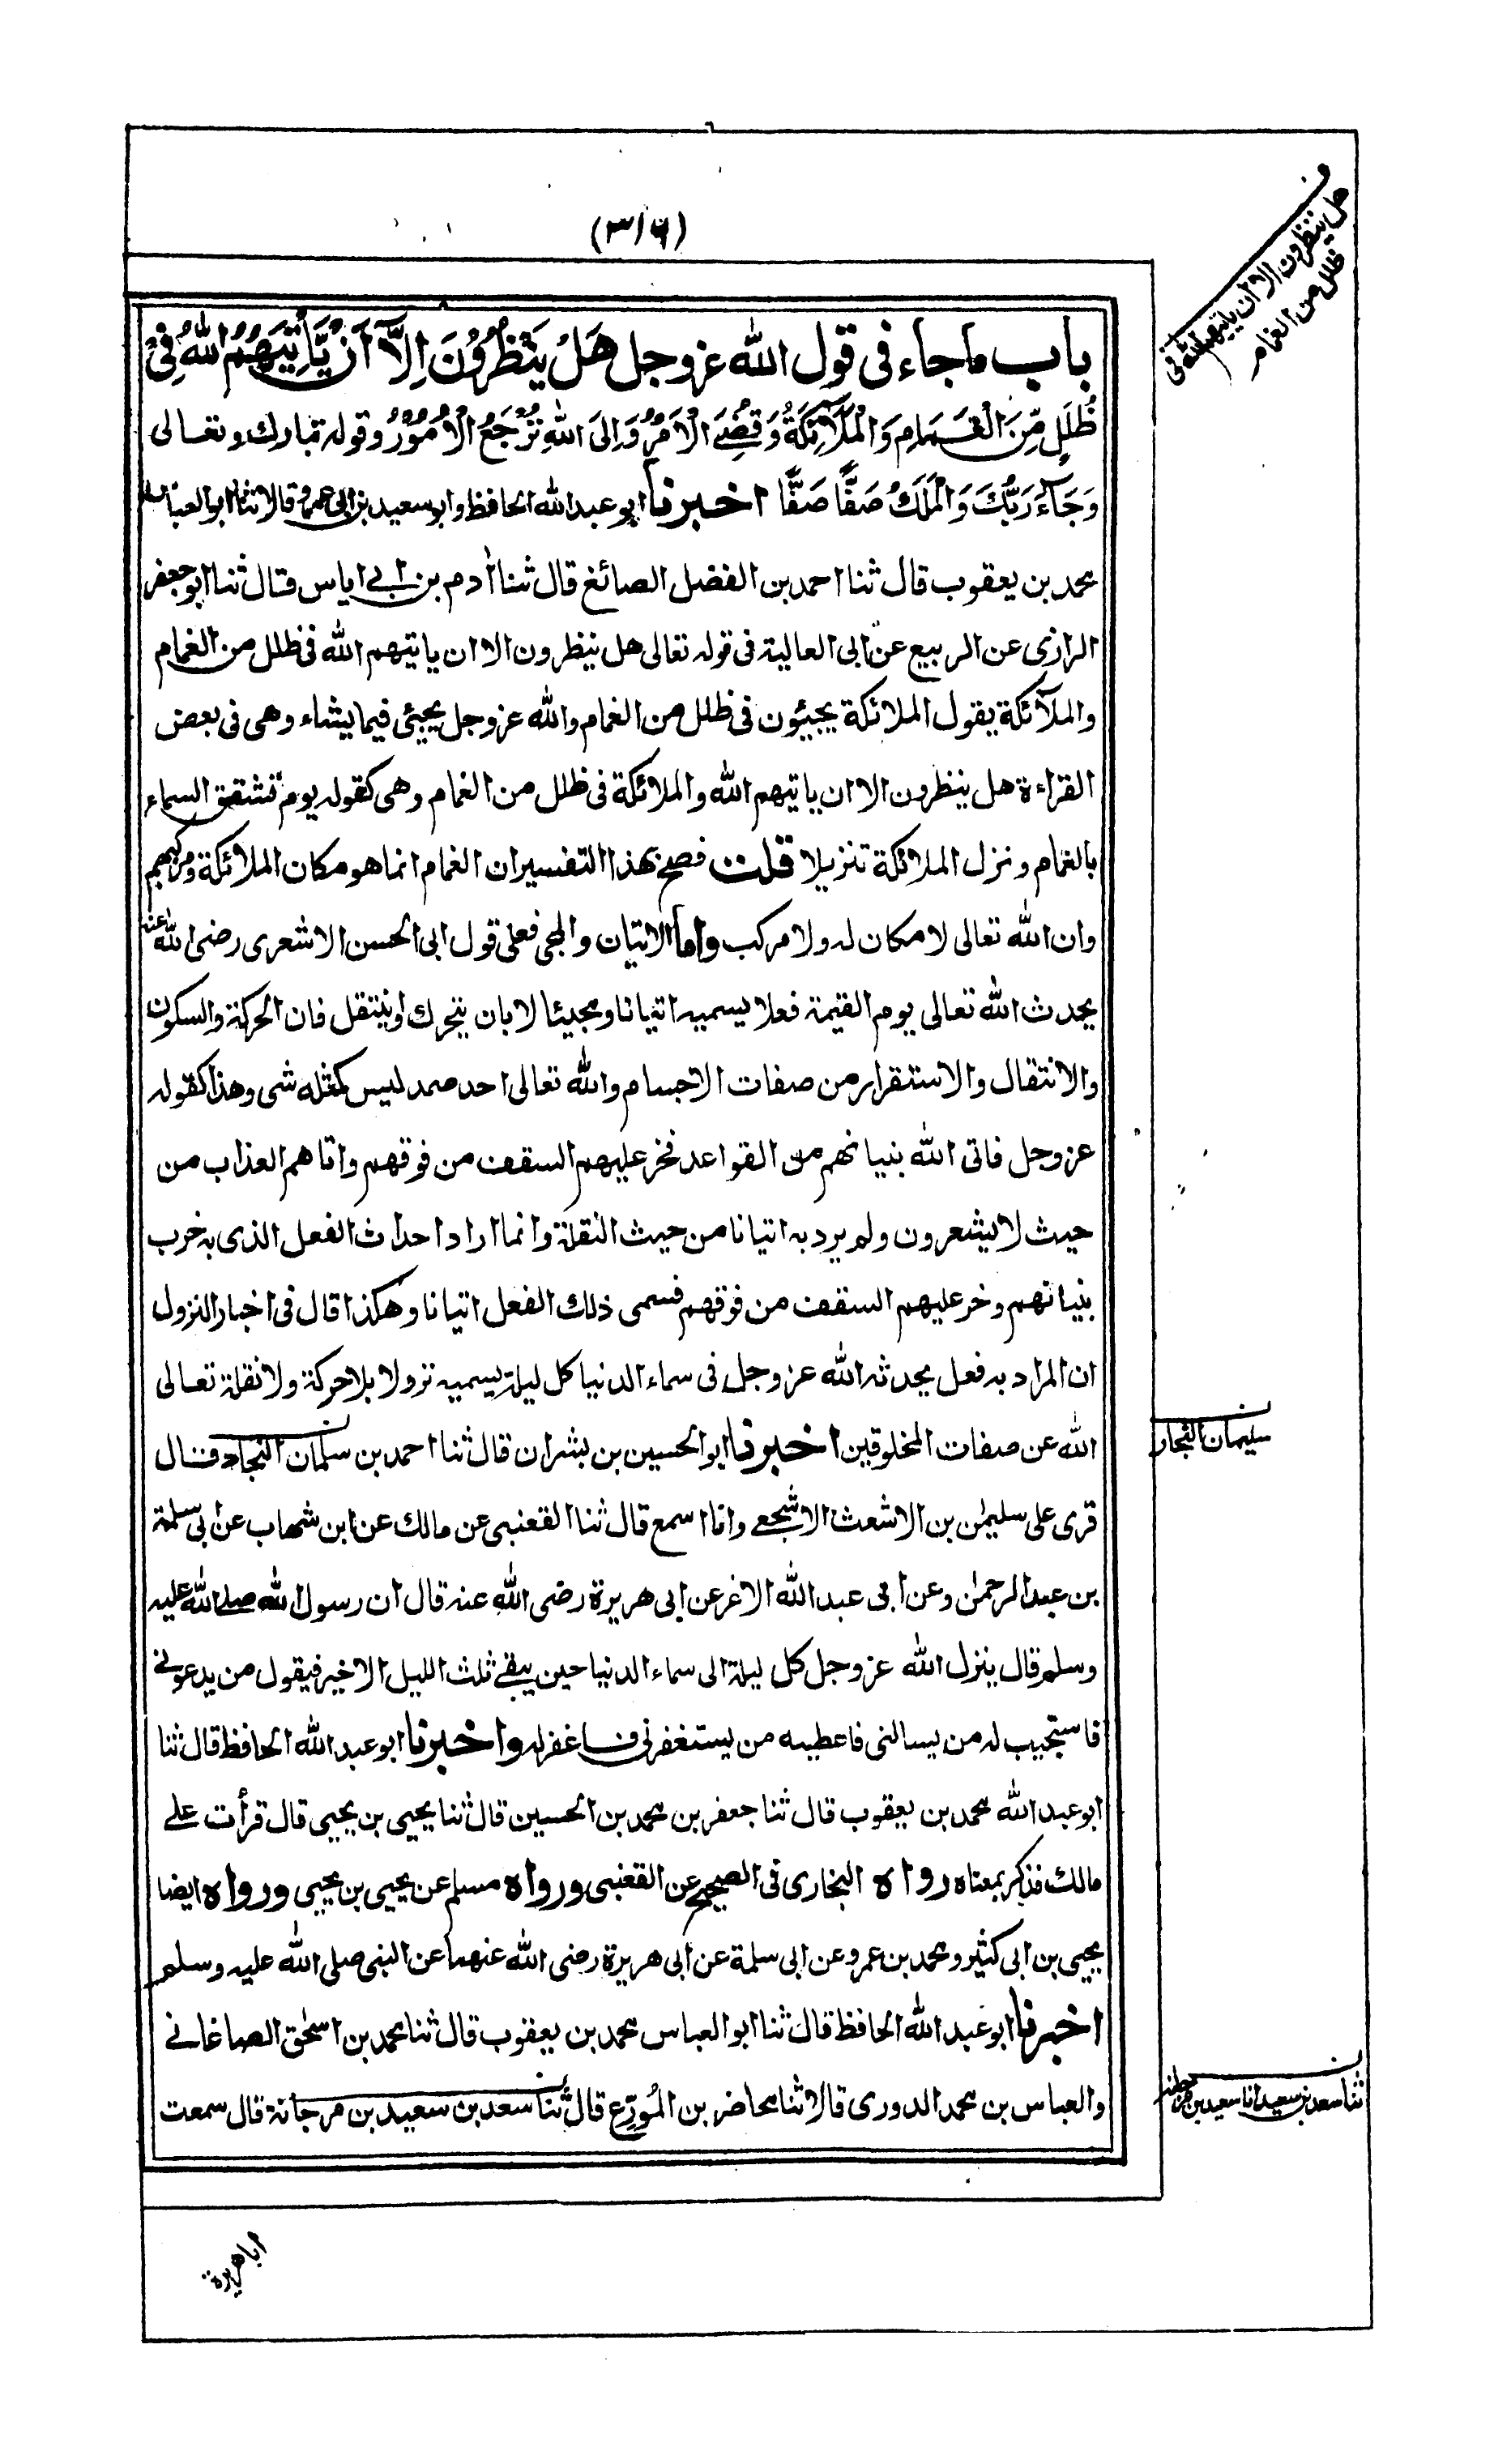 (٣١٦)
ف
هل ينظرون الا ان ياتيهم الله في
ظلل من الغمام
باب ما جاء فى قول الله عز وجل هَلْ يَنْظُرُوْنَ اِلَّآ اَنْ يَّأْتِيَهُمُ اللّٰهُ فِىْ
ظُلَلٍ مِّنَ الْغَمَامِ وَالْمَلَآئِكَةُ وَقُضِىَ الْاَمْرُ وَاِلَى اللّٰهِ تُرْجَعُ الْاُمُوْرُ وقوله تبارك وتعالى
وَجَآءَ رَبُّكَ وَالْمَلَكُ صَفًّا صَفًّا اخبرنا ابو عبد الله الحافظ وابو سعيد بن ابى عمرو قالا ثنا ابو العباس
محمد بن يعقوب قال ثنا احمد بن الفضل الصائغ قال ثنا اٰدم بن ابى اياس قال ثنا ابو جعفر
الرازى عن الربيع عن ابى العالية فى قوله تعالى هل ينظرون الا ان ياتيهم الله فى ظلل من الغمام
والملآئكة يقول الملائكة يجيئون فى ظلل من الغمام والله عز وجل يجيئ فيما يشاء وهى فى بعض
القراءة هل ينظرون الا ان ياتيهم الله والملائكة فى ظلل من الغمام وهى كقوله يوم تشقق السماء
بالغمام ونزل الملائكة تنزيلا قلت فصح بهذا التفسير ان الغمام انما هو مكان الملائكة ومركبهم
وان الله تعالى لا مكان له ولا مركب واما الاتيان والمجى فعلى قول ابى الحسن الاشعرى رضى الله عنه
يحدث الله تعالى يوم القيٰمة فعلا يسميه اتيانا ومجيئا لا بان يتحرك او ينتقل فان الحركة والسكون
والانتقال والاستقرار من صفات الاجسام والله تعالى احد صمد ليس كمثله شى وهذا كقوله
عز وجل فاتى الله بنيانهم من القواعد فخر عليهم السقف من فوقهم واتاهم العذاب من
حيث لا يشعرون ولم يرد به اتيانا من حيث النقلة وانما اراد احداث الفعل الذى به خرب
بنيانهم وخر عليهم السقف من فوقهم فسمى ذلك الفعل اتيانا وهكذا قال فى اخبار النزول
ان المراد به فعل يحدثه الله عز وجل فى سماء الدنيا كل ليلة يسميه نزولا بلا حركة ولا نقلة تعالى
الله عن صفات المخلوقين اخبرنا ابو الحسين بن بشران قال ثنا احمد بن سلمان النجاد قال
ن
سليمان النجار
قرى على سليمٰن بن الاشعث الاشجعى وانا اسمع قال ثنا القعنبى عن مالك عن ابن شهاب عن ابى سلمة
بن عبد الرحمٰن وعن ابى عبد الله الاغر عن ابى هريرة رضى الله عنه قال ان رسول الله صلى الله عليه
وسلم قال ينزل الله عز وجل كل ليلة الى سماء الدنيا حين يبقى ثلث الليل الاخير فيقول من يدعونى
فاستجيب له من يسالنى فاعطيه من يستغفرنى فاغفر له واخبرنا ابو عبد الله الحافظ قال ثنا
ابو عبد الله محمد بن يعقوب قال ثنا جعفر بن محمد بن الحسين قال ثنا يحيى بن يحيى قال قرأت على
مالك فذكر بمعناه رواه البخارى فى الصحيح عن القعنبى ورواه مسلم عن يحيى بن يحيى ورواه ايضا
يحيى بن ابى كثير ومحمد بن عمرو عن ابى سلمة عن ابى هريرة رضى الله عنهما عن النبى صلى الله عليه وسلم
اخبرنا ابو عبد الله الحافظ قال ثنا ابو العباس محمد بن يعقوب قال ثنا محمد بن اسحٰق الصاغانى
والعباس بن محمد الدورى قالا ثنا محاضر بن المُوَرِّع قال ثنا سعد بن سعيد بن مرجانة قال سمعت
ن
ثنا سعد بن سعيد انا سعيد بن مرجانة
ابا هريرة